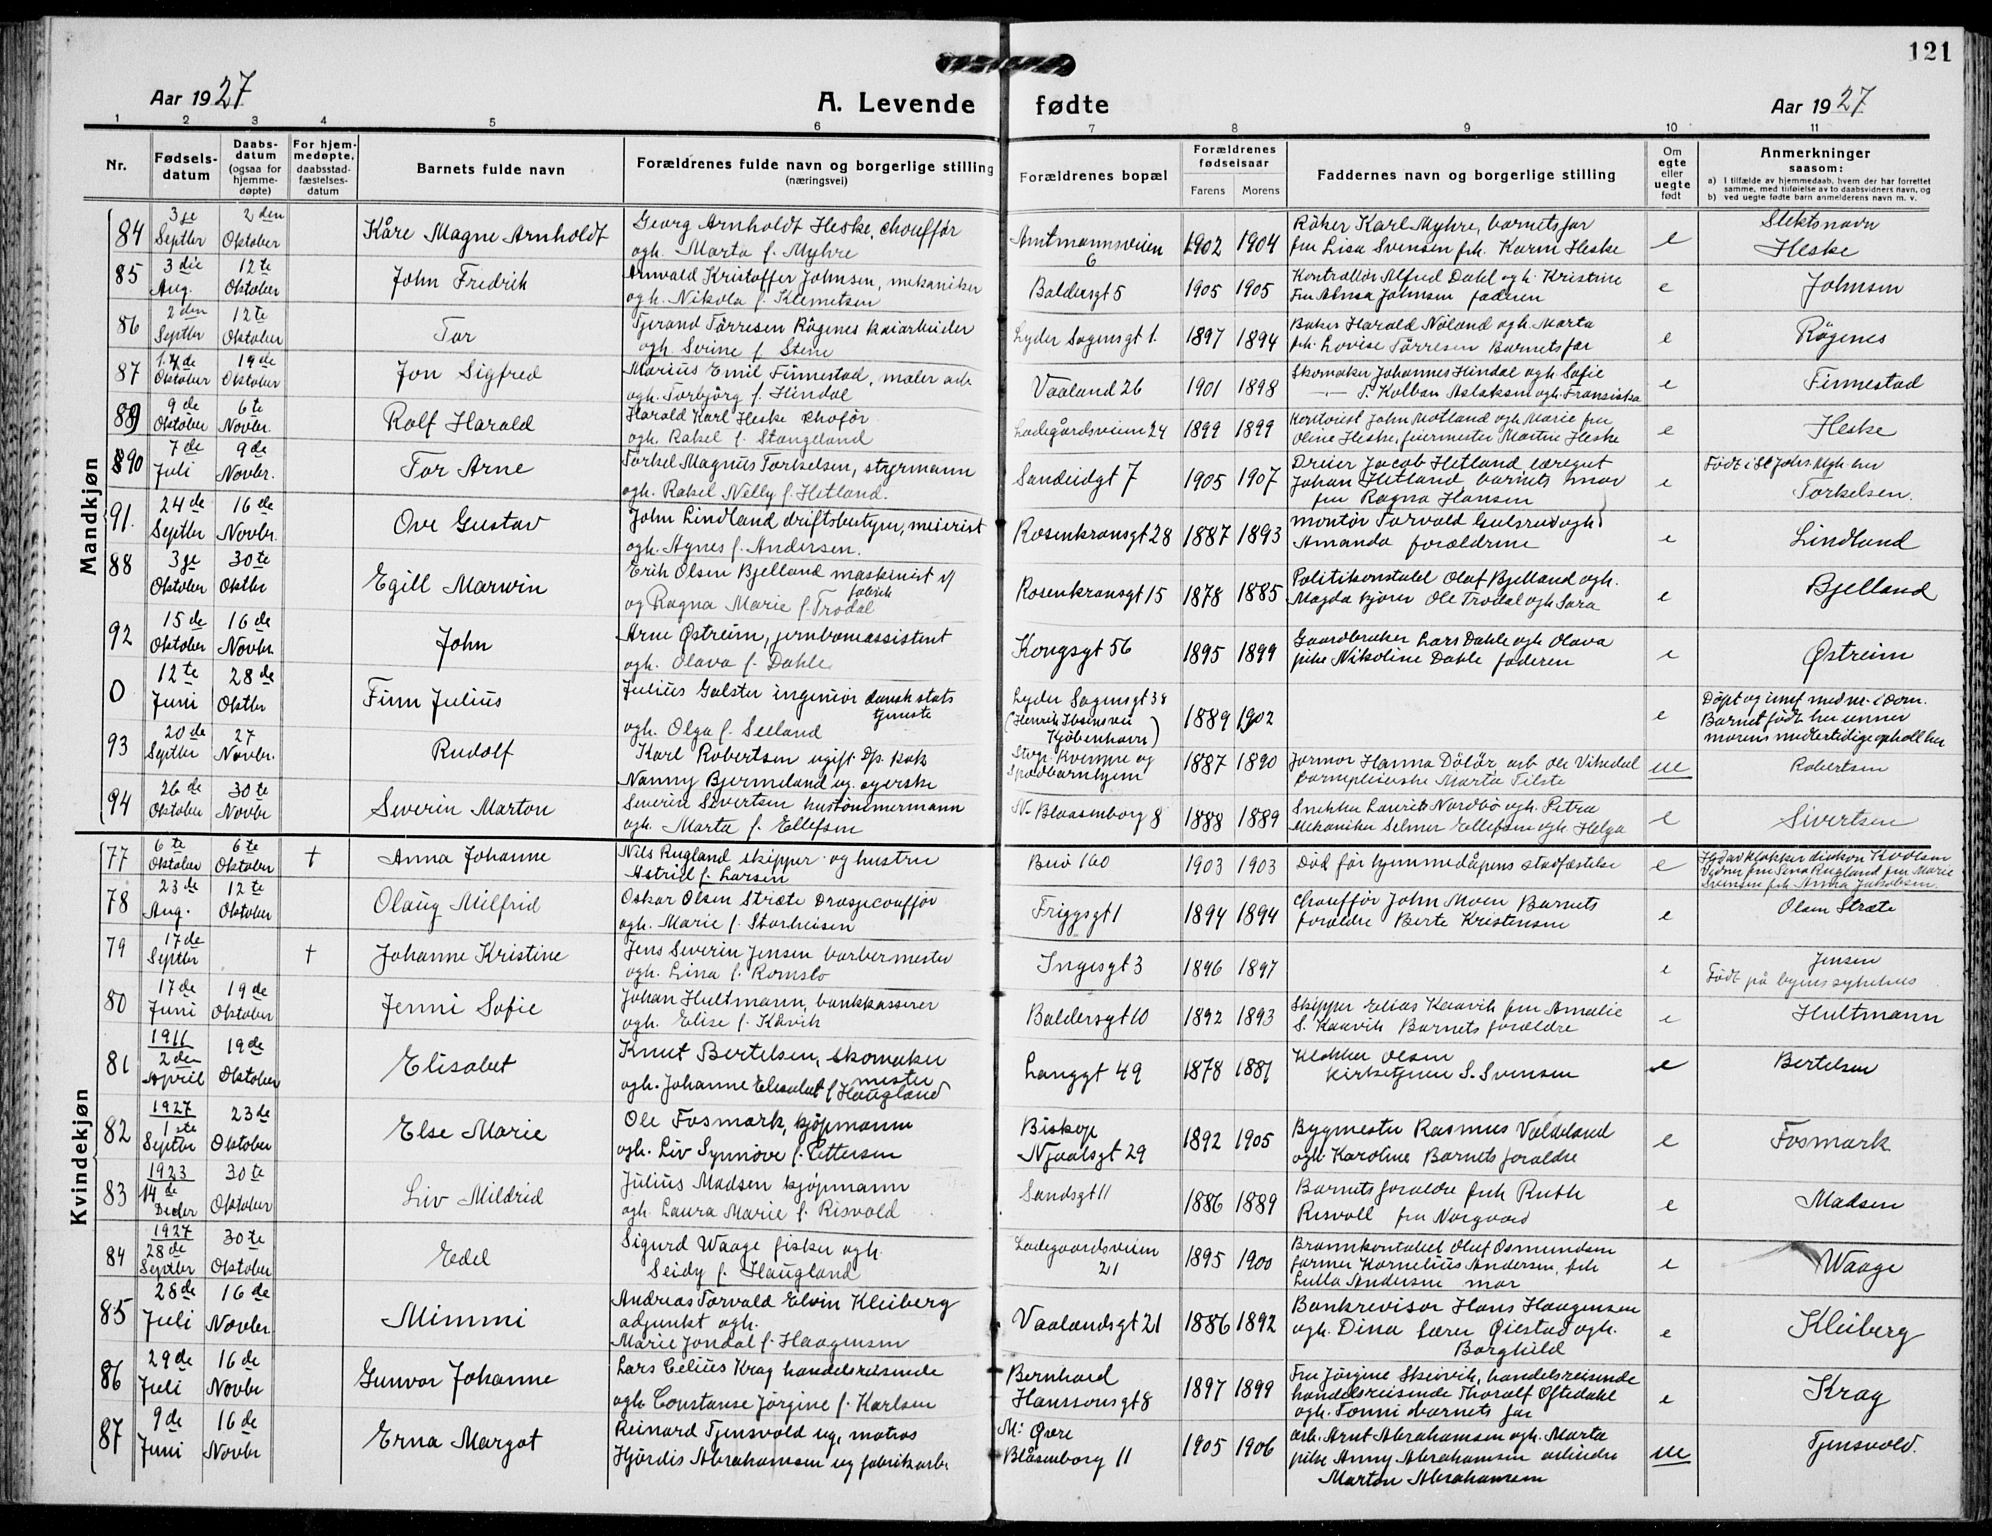 121
Aar 1927
A. Levende fødte
Aar 1927
1 2 3 4 5 6 7 8 9 10 11
Nr.
Fødselsdatum
Daabsdatum (ogsaa for hjemmedøpte)
For hjemmedøpte, daabsstadfæstelsesdatum
Barnets fulde navn
Forældrenes fulde navn og borgerlige stilling (næringsvei)
Forældrenes bopæl
Forældrenes fødselsaar
Farens Morens
Faddernes navn og borgerlige stilling
Om egte eller uegte født
Anmerkninger saasom:
a) I tilfælde av hjemmedaab, hvem der har forrettet samme, med tilføielse av to daabsvidners navn, og
b) ved uegte fødte barn anmelderens navn m. v.
Mandkjøn
84 3die Septbr 2den Oktober Kåre Magne Arnholdt
Georg Arnholdt Heske, chouffør
ogh. Marta f. Myhre
Amtmannsveien 6 1902 1904
Karl Myhre, barnets far
fru Lisa Svensen frk. Karin Heske
e Slektsnavn Heske
85 3die Aug. 12te Oktober John Fredrik
Arnvald Kristoffer Johnsen, mekaniker
ogh. Nikola f. Klemetsen
Baldersgt 5 1905 1905
Kontrollør Alfred Dahl ogh. Kristine
Fru Johnsen faderen
e Johnsen
86 2den Septbr 12te Oktober Tor
Tjerand Tørresen Røgenes kaiarbeider
ogh. Serine f. Stene
Lyder Sagensgt 1. 1897 1894
Baker Harald Nøland ogh. Marta
frk. Lovise Tørresen Barnets far
e Røgenes
87 14de Oktober 19de Oktober Jon Sigfred
Marius Emil Finnestad, maler arb
ogh. Torbjørg f. Hindal
Vaaland 26 1901 1898
Skomaker Johannes Hindal ogh Sofie
Kolban Aslaksen ogh. Fransiska
e Finnestad
89 9de Oktober 6te Novbr. Rolf Harald
Harald Karl Heske chofør
ogh. Rakel f. Stangeland
Ladegårdsveien 24 1899 1899
Kontorist John Motland ogh Marie fru
Oline Heske, feiermester Martin Heske
e Heske
90 7de Juli 9de Novbr. Tor Arne
Torkel Magnus Torkelsen, styrmann
ogh. Rakel Nelly f. Hetland.
Sandeidgt 7 1905 1907
Dreier Jacob Hetland, læregut
Johan Hetland, barnets mor
fru Ragna Hansen
e Født i St Joh. her
Torkelsen.
91. 24de Septbr 16de Novbr. Ove Gustav
John Lindland driftsbestyrer, meierist
ogh. Agnes f. Andersen.
Rosenkransgt 28 1887 1893
montør Torvald Gulsrud ogh
Amanda forældrene
e Lindland
88 3je Oktober 30te Oktbr Egill Marwin
Erik Olsen Bjelland maskinist v/ fabrik
og Ragna Marie f. Trodal
Rosenkransgt 15 1878 1885
Politikonstabel Olaf Bjelland ogh.
Magda kjører Ole Trodal ogh Sara
e Bjelland
92 15de Oktober 16de Novbr. John
Arne Østreim, jernbaneassistent
ogh. Olava f. Dahle
Kongsgt 56 1895 1899
Gaardbruker Lars Dahle ogh Olava
pike Nikoline Dahle faderen
e Østreim
0 12te Juni 28de Oktbr Finn Julius
Julius Galster ingeniør dansk stats tjeneste
ogh. Olga f. Seeland
Lyder Sagensgt 38
(Henrik Ibsensvei Kjøbenhavn)
1889 1902
e Døpt og
Barnet født her under
morens midlertidige ophold her
93 20de Septbr 27 Novbr. Rudolf
Karl Robertsen ugift kok
Nanny Bjermeland ug. syerske
Kvinne og Spædbarnhjem 1887 1890
Jormor Hanna arb Ole Vikedal
Marta
ue Robertsen
94 26de Oktober 30te Novbr Severin Marton
Severin Sivertsen hustømmermann
ogh. Marta f. Ellefsen
N. Blaasenborg 8 1888 1889
Snekker Laurits Nordbø ogh. Petra
Mekaniker Selmer Ellefsen ogh. Helga
e Sivertsen
Kvindekjøn
77 6te Oktober 6te Oktober † Anna Johanne
Nils Rugland skipper og hustru
Astrid f. Larsen
Buø 160 1903 1903
Død før hjemmedåpens stadfæstelse
e Hd av klokker diakon K Olsen
Vidner fru Sina Rugland fru Marie
Svensen frk Anna Jakobsen
78 23de Aug. 12te Oktober Olaug Milfrid
Oskar Olsen Stræte Drosjechouffør
ogh. Marie f. Storheisen
Friggsgt 1 1894 1894
Chouffør John Moen Barnets
forældre Berte Kristensen
e Olsen Stræte
79 17de Septbr † Johanne Kristine
Jens Severin Jensen barbermester
ogh. Lina f. Romslo
Ingesgt 3 1896 1897
e Jensen
Født på byens sykehus
80 17de Juni 19de Oktober Jenni Sofie
Johan Hultmann, bankkasserer
ogh. Elise f. Kåvik
Baldersgt 10 1892 1893
Skipper Elias Kaavik fru Amalie
S. Kaavik Barnets forældre
e Hultmann
81 1911 2den April 19de Oktober Elisabet
Knut Bertelsen, skomakermester
ogh. Johanne Elisabet f. Haugland
Langgt 49 1878 1881
Klokker Olsen
Kirketjener S. Svensen
e Bertelsen
82 1927 1ste Septbr 23de Oktober Else Marie
Ole Fosmark, kjøpmann
ogh. Liv Synnøve f. Pettersen
Biskop Njaalsgt 29 1892 1905
Bygmester Rasmus Valdeland
ogh Karoline Barnets forældre
e Fosmark
83 1923 14de Decbr 30te Oktober Liv Mildrid
Julius Madsen kjøpmann
ogh. Laura Marie f. Risvold
Sandsgt 11 1886 1889
Barnets forældre frk Ruth
Risvoll fru Norgaard
e Madsen
84 1927 28de Septbr 30te Oktober Edel
Sigurd Waage fisker ogh
Seidy f. Haugland
Ladegaardsveien 21 1895 1900
Brannkonstabel Oluf Osmundsen
former Kornelius Andersen, frk
Lulla Andersen mor
e Waage
85 28de Juli 16de Novbr. Mimmi
Andreas Torvald Elvin Kleiberg
adjunkt ogh.
Marie Jondal f. Haagensen
Vaalandsgt 21 1886 1892
Bankrevisor Hans Haagensen
ogh. Dina lærer Øiestad ogh.
Borghild
e Kleiberg
86 29de Juli 16de Novbr Gunvor Johanne
Lars Celius Krag handelsreisende
ogh Constanse Jørgine f. Karlsen
Bernhard Hanssonsgt 8 1897 1899
Fru Jørgine Skeivik, handelsreisende
handelsreisende Thoralf Oftedahl
ogh. Tonni barnets far
e Krag
87 9de Juni 16de Novbr Erna Margot
Reinard Tjensvold ug. matros
Hjørdis Abrahamsen ug fabrikarb.
M: Øvre Blåsenborg 11 1905 1906
arb. Arnt Abrahamsen ogh. Marta
pike Anny Abrahamsen arbeider
Marton Abrahamsen
ue Tjensvold.